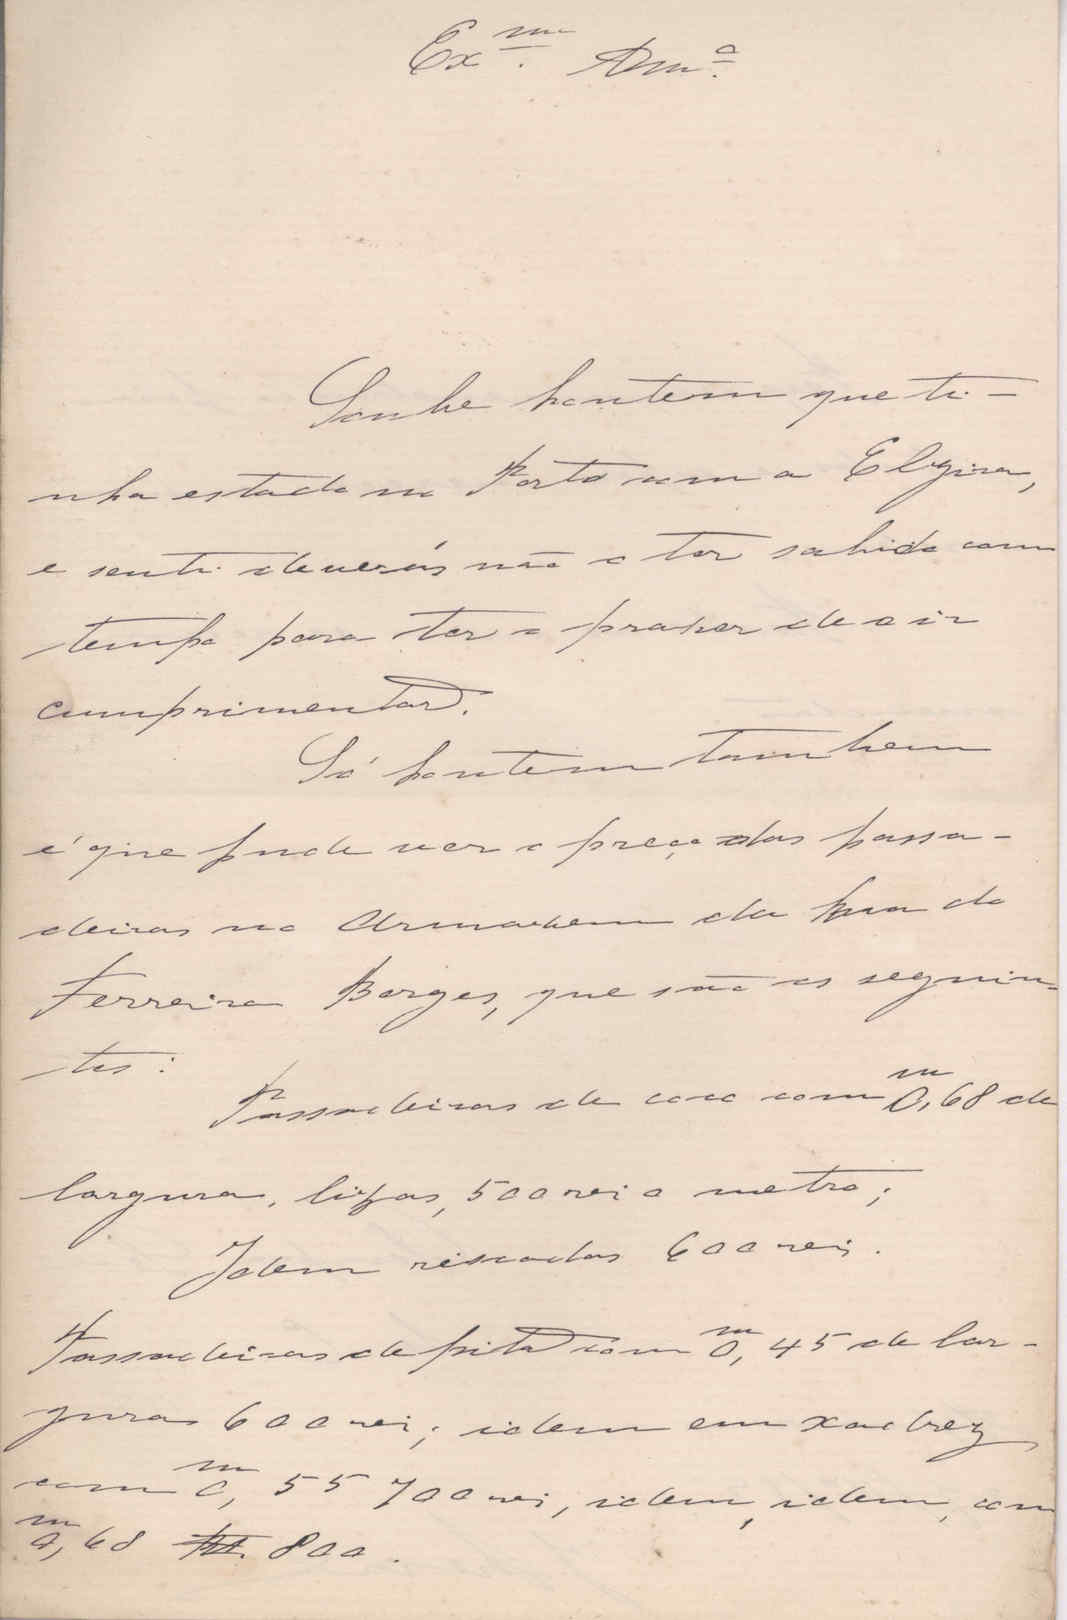 Exma. Amª.
Soube hontem que ti-
nha estado no Porto com a Elyzira,
e senti devéras não o ter sabido com
tempo para ter o prazer de a ir
cumprimentar.
Só hontem tambem
é que pude ver o preço das passa-
deiras no Armazem da Rua do
Ferreira Borges, que são os seguin-
tes:
Passadeiras de coco com 0,m68 de
largura, lizas, 500 reis o metro;
Idem riscadas 600 reis.
Passadeiras de pita com 0,m45 de lar-
gura 600 reis; idem em xadrez
com 0,m55 700 reis, idem, idem, com
0,m68 800.